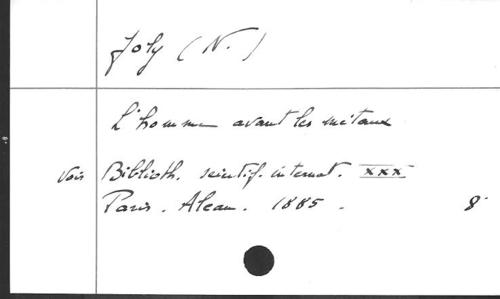 Joly (N.)
L'homme avant les métaux
voir Biblioth. scientif. internat. XXX
Paris. Alcan. 1885. 8°